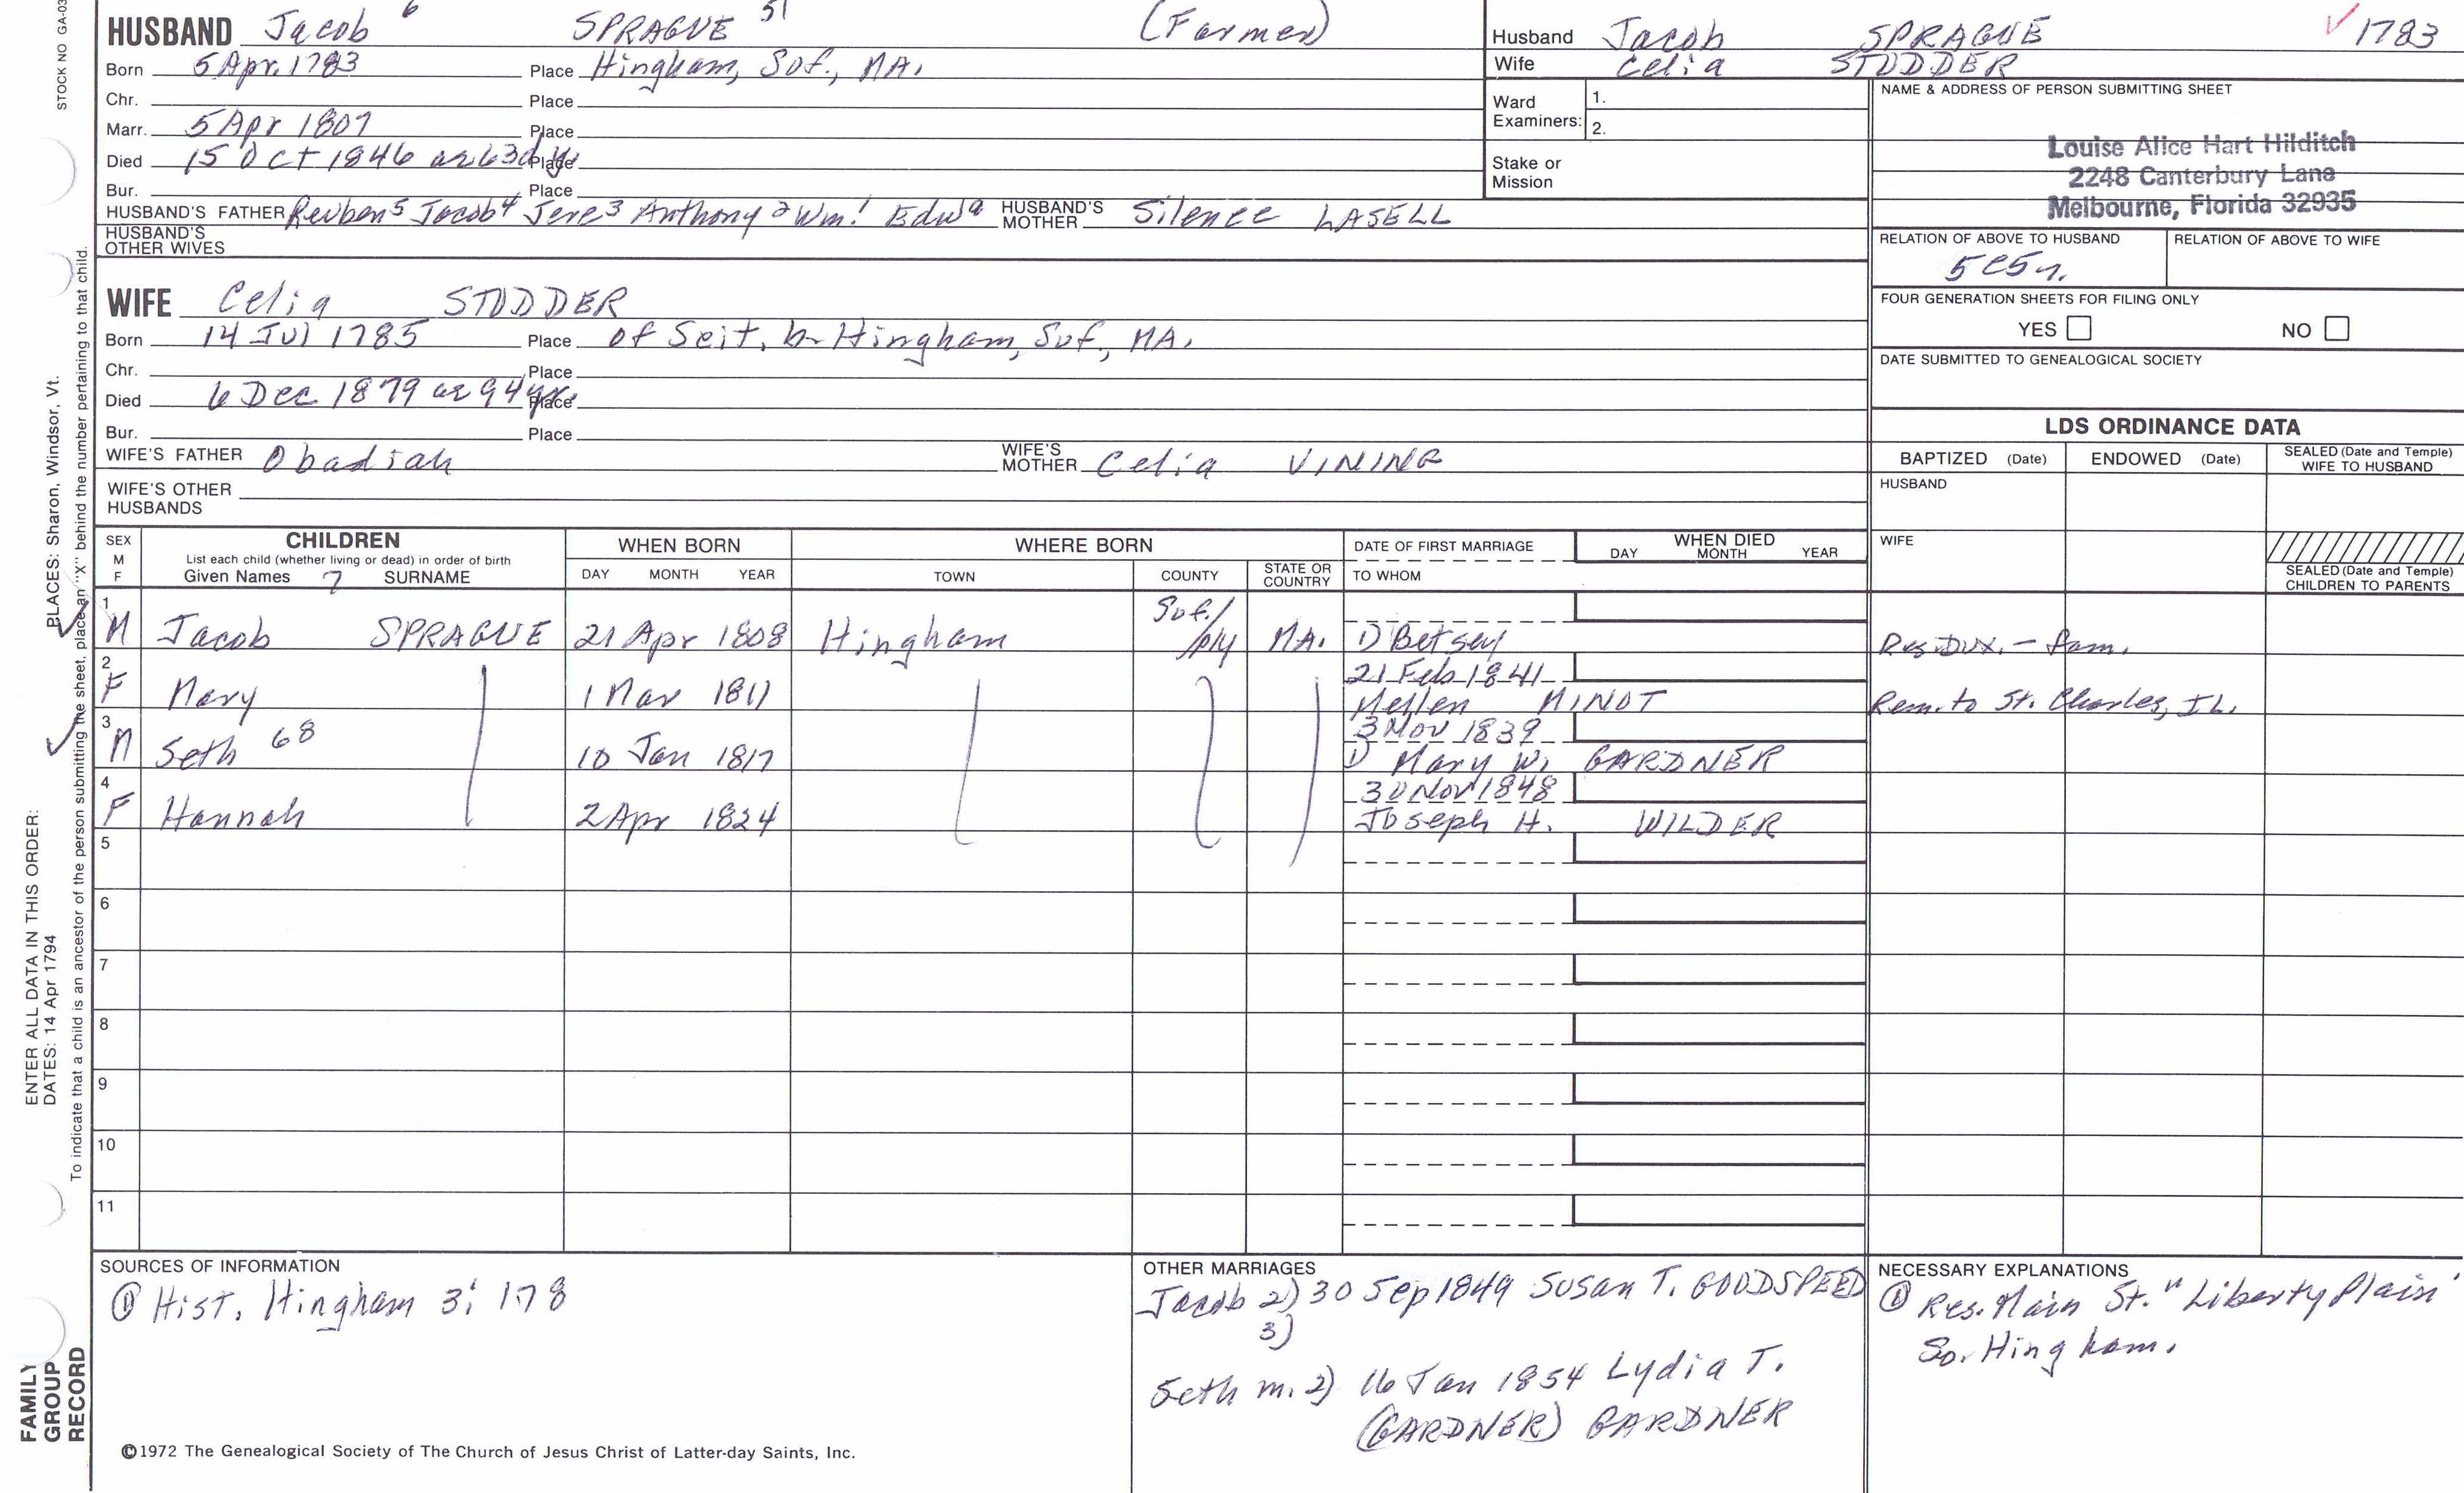 STOCK NO GA-03
HUSBAND Jacob 6 SPRAGUE 51 (Farmer)
Born 5 Apr. 1783 Place Hingham, Suf., MA.
Chr. Place
Marr. 5 Apr 1807 Place
Died 15 Oct 1846 ae 63d y Place
Bur. Place
HUSBAND'S FATHER Reuben5 Jacob4 Jere3 Anthony2 Wm1 Edwa HUSBAND'S MOTHER Silence LASELL
HUSBAND'S OTHER WIVES
WIFE Celia STODDER
Born 14 Jul 1785 Place of Scit. b- Hingham, Suf., MA.
Chr. Place
Died 6 Dec 1879 ae 94 yr. Place
Bur. Place
WIFE'S FATHER Obadiah WIFE'S MOTHER Celia VINING
WIFE'S OTHER HUSBANDS
Husband Jacob SPRAGUE ✓ 1783
Wife Celia STODDER
Ward Examiners: 1.
2.
Stake or Mission
NAME & ADDRESS OF PERSON SUBMITTING SHEET
Louise Alice Hart Hilditch
2248 Canterbury Lane
Melbourne, Florida 32935
RELATION OF ABOVE TO HUSBAND RELATION OF ABOVE TO WIFE
5c5r.
FOUR GENERATION SHEETS FOR FILING ONLY
YES NO
DATE SUBMITTED TO GENEALOGICAL SOCIETY
LDS ORDINANCE DATA
BAPTIZED (Date) ENDOWED (Date) SEALED (Date and Temple) WIFE TO HUSBAND
HUSBAND
WIFE
SEALED (Date and Temple) CHILDREN TO PARENTS
SEX M F
CHILDREN
List each child (whether living or dead) in order of birth
Given Names 7 SURNAME
WHEN BORN
DAY MONTH YEAR
WHERE BORN
TOWN COUNTY STATE OR COUNTRY
DATE OF FIRST MARRIAGE
TO WHOM
WHEN DIED
DAY MONTH YEAR
1 M Jacob SPRAGUE 21 Apr 1808 Hingham Suf./Ply MA. 1) Betsey Res. Dux. - Pam.
2 F Mary 1 Mar 1811 21 Feb 1841 Mellen MINOT Rem. to St. Charles, IL.
3 M Seth 68 10 Jan 1817 3 Nov 1839 1) Mary W. GARDNER
4 F Hannah 2 Apr 1824 30 Nov 1848 Joseph H. WILDER
5
6
7
8
9
10
11
SOURCES OF INFORMATION
① Hist. Hingham 3: 178
OTHER MARRIAGES
Jacob 2) 30 Sep 1849 SUSAN T. GOODSPEED
3)
Seth m. 2) 16 Jan 1854 Lydia T.
(GARDNER) GARDNER
NECESSARY EXPLANATIONS
① Res. Main St. "Liberty Plain"
So. Hingham.
©1972 The Genealogical Society of The Church of Jesus Christ of Latter-day Saints, Inc.
PLACES: Sharon, Windsor, Vt.
To indicate that a child is an ancestor of the person submitting the sheet, place an "X" behind the number pertaining to that child.
ENTER ALL DATA IN THIS ORDER:
DATES: 14 Apr 1794
FAMILY GROUP RECORD